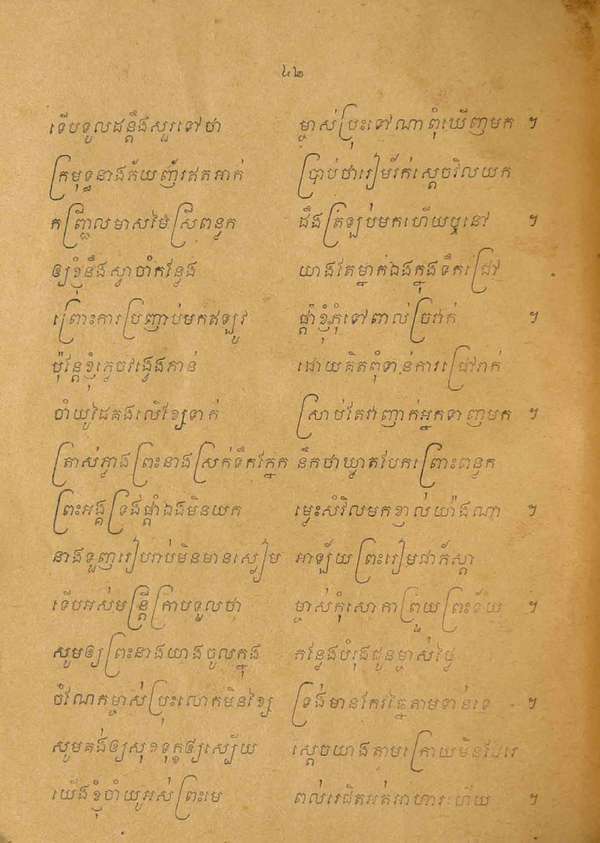 ៤២
ទើបទូលដន្តឹងសួរទៅថា ម្ចាស់ប្រុះទៅណាពុំឃើញមក ៗ
ក្រមុទ្ធនាងភ័យញ័រឥតអាក់ ប្រាប់ថារៀមរ៉ក់ស្ដេចវិលយក
កញ្ច្រាលមាសមៃស្រីពន្លក ដឹងត្រឡប់មកហើយឬនៅ ៗ
ឲ្យខ្ញុំនឹងស្វាចាំកន្លែង យាងតែម្នាក់ឯងក្នុងទឹកជ្រៅ
ព្រោះការប្រញាប់មកឥឡូវ ផ្ដាំខ្ញុំកុំទៅពាល់ច្រវ៉ាក់ ៗ
ប៉ុន្តែខ្ញុំភ្លេចវង្វេងភាន់ ដោយគិតពុំទាន់ការជ្រៅរាក់
ចាំយូរដៃគងលើខ្សែទាក់ ស្រាប់តែវាញាក់អ្នកទាញមក ៗ
ត្រាស់ភ្លាងព្រះនាងស្រក់ទឹកភ្នែក នឹកថាឃ្លាតបែកព្រោះពន្លក
ព្រះអង្គទ្រង់ផ្ដាំឯងមិនយក ម្ដេះសំវិលមកខ្ញាល់យ៉ាងណា ៗ
នាងទួញរៀបរាប់មិនមានស្បើម អាឡ័យព្រះរៀមជាភ័ស្ដា
ទើបអស់មន្ត្រីក្រាបទូលថា ម្ចាស់កុំសោកាព្រួយព្រះទ័យ ៗ
សូមឲ្យព្រះនាងយាងចូលក្នុង កន្លែងបំរុងជូនម្ចាស់ថ្លៃ
ចំណែកម្ចាស់ប្រុះលោកមិនខ្សៃ ទ្រង់មានកែវឆ្នៃតាមទាន់ទេ ៗ
សូមគង់ឲ្យសុខទុក្ខឲ្យស្បើយ ស្ដេចយាងតាមក្រោយមិនបែរេ
យើងខ្ញុំចាំយូអស់ព្រះមេ ពល់រេជិតអត់អាហារៈហើយ ៗ